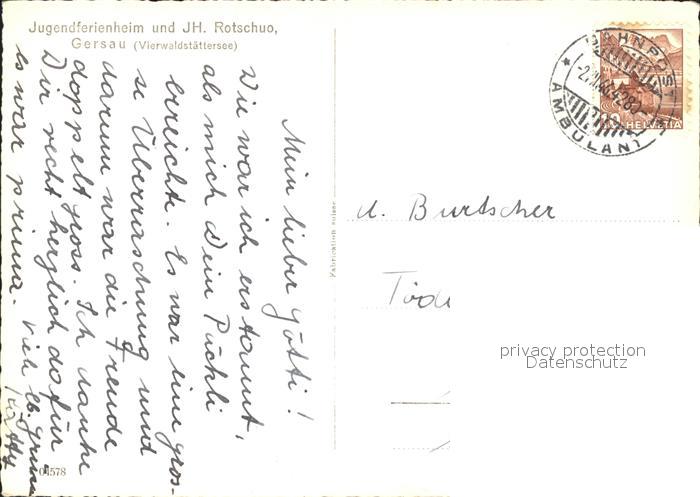 Jugendferienheim und JH. Rotschuo,
Gersau (Vierwaldstättersee)
Mein lieber Götti!
Wie war ich erstaunt,
als mich Dein Päckli
erreichte. Es war eine gros-
se Überraschung und
darum war die Freude
doppelt gross. Ich danke
Dir recht herzlich dafür
es war prima. Viele lb. Grüsse
04578
Fabrication suisse
BAHNPOST
AMBULANT
HELVETIA
U. Burtscher
Tödi
privacy protection
Datenschutz